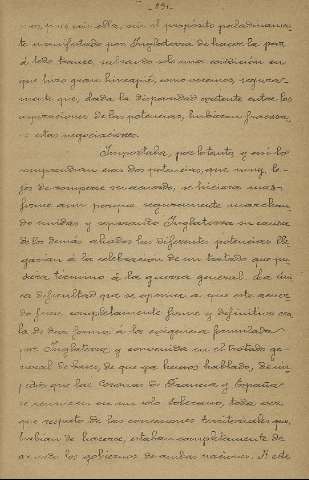 - 231 -
con ella, sin el propósito paladinamen-
te manifestado por Inglaterra de hacer la paz
á todo trance, salvando solo una condición en
que hizo gran hincapié, como veremos, segura-
mente que, dada la disparidad existente entre las
aspiraciones de las potencias, hubieran fracasa-
do estas negociaciones.
Importaba, por lo tanto, y así lo
comprendían esas dos potencias, que muy le-
jos de romperse su acuerdo, se hiciera mas
firme aun porque seguramente marchan-
do unidas y separando Inglaterra su causa
de los demás aliados las diferentes potencias lle-
garían á la celebración de un tratado que pu-
siera término á la guerra general. La úni-
ca dificultad que se oponía a que este acuer-
do fuese completamente firme y definitivo era
la de dar forma á la exigencia formulada
por Inglaterra y convenida en el tratado ge-
neral de bases, de que ya hemos hablado, de im-
pedir que las Coronas de Francia y España
se reuniesen en un solo soberano, toda vez
que respecto de las concesiones territoriales que
habian de hacerse, estaban completamente de
acuerdo los gobiernos de ambas naciones. A este